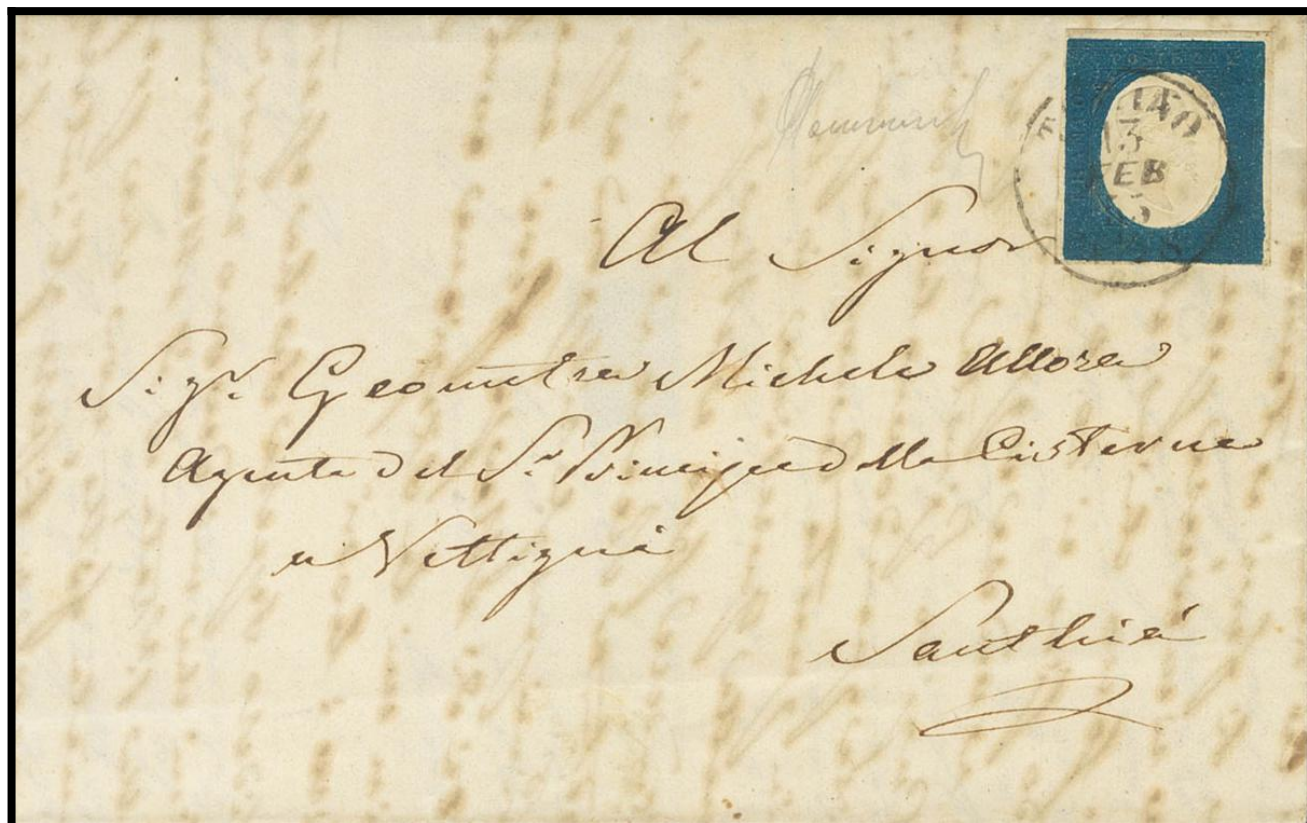 Al Signor
Sigr. Geometra Michele Allora
Agente del Sr. Principe della Cisterna
a Vettignè
Santhià
13
FEB